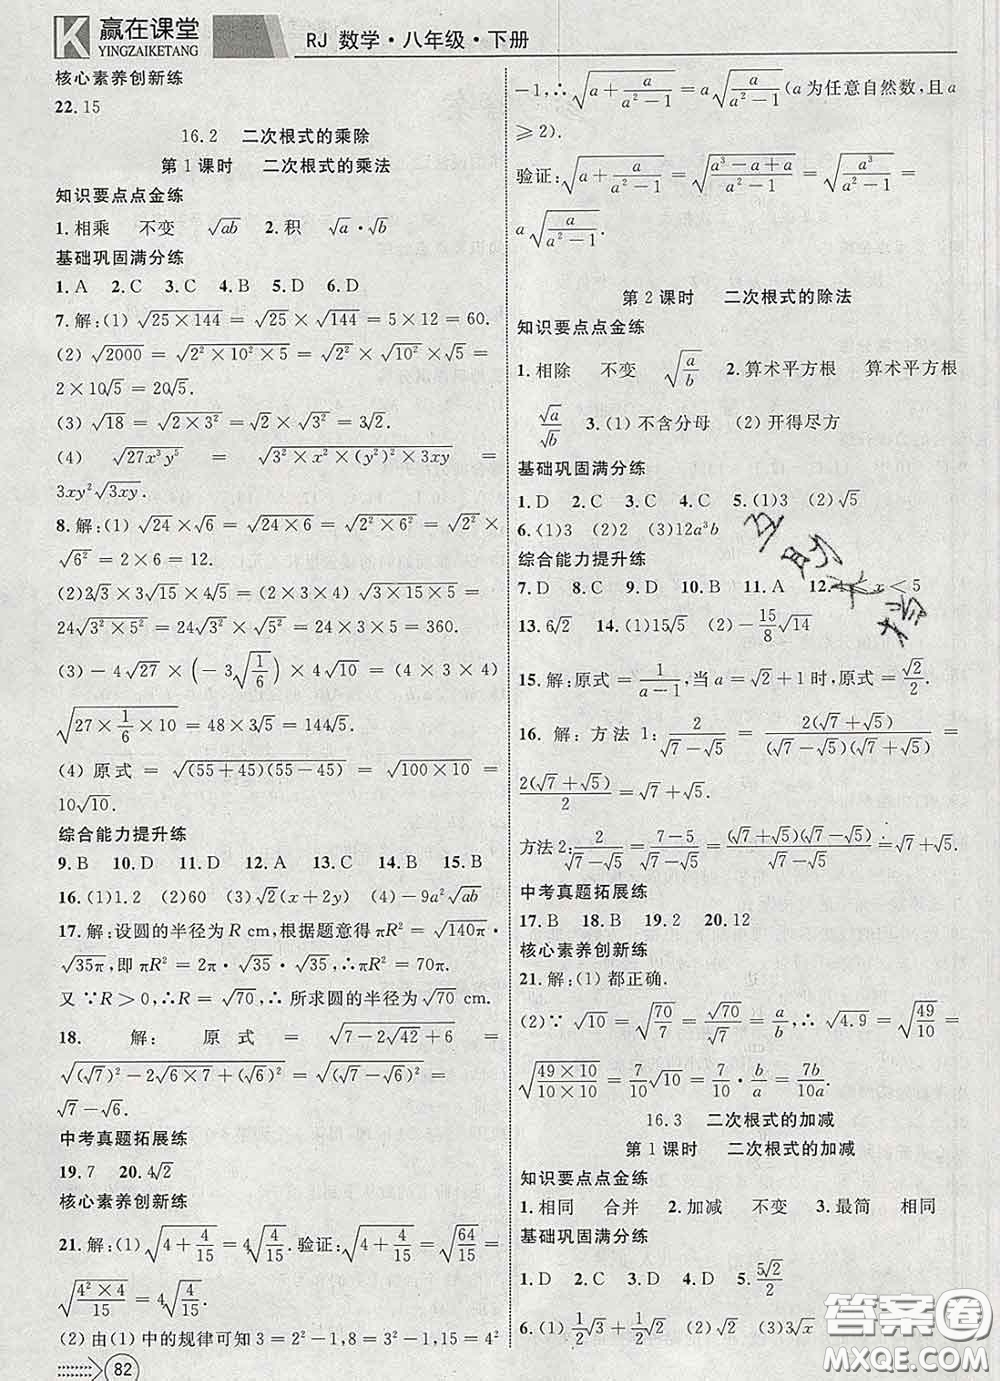 K 赢在课堂
YINGZAIKETANG
RJ 数学·八年级·下册
核心素养创新练
22.15
16.2 二次根式的乘除
第1课时 二次根式的乘法
知识要点点金练
1.相乘 不变 √(ab) 2.积 √a·√b
基础巩固满分练
1.A 2.C 3.C 4.B 5.D 6.D
7.解:(1) √(25×144) = √25 × √144 = 5×12=60.
(2) √2000 = √(2²×10²×5) = √2² × √10² × √5 =
2×10√5=20√5.
(3) √18 = √(2×3²) = √2 × √3² =3√2.
(4) √(27x³y⁵) = √(3²×x²×(y²)²×3xy) =
3xy²√(3xy).
8.解:(1) √24×√6 = √(24×6) = √(2²×6²) = √2² ×
√6² =2×6=12.
(2)2√3×3√15×4√5=(2×3×4)×√(3×15×5)=
24√(3²×5²)=24×√3²×√5²=24×3×5=360.
(3)-4√27×(-3√(1/6))×√10 = (4×3×4)
√(27×1/6×10)=48×3√5=144√5.
(4)原式=√((55+45)(55-45))=√(100×10)=
10√10.
综合能力提升练
9.B 10.D 11.D 12.A 13.C 14.B 15.B
16.(1)1.2 (2)60 (3)√2(x+2y) (4)-9a²√(ab)
17.解:设圆的半径为R cm,根据题意得πR²=√(140π)·
√(35π),即πR²=2π·√35·√35,∴πR²=70π.
又∵R>0,∴R=√70,∴所求圆的半径为√70 cm.
18. 解: 原式 = √(7-2√42+6) =
√((√7)²-2√(6×7)+(√6)²)=√((√7-√6)²)=
√7-√6.
中考真题拓展练
19.7 20.4√2
核心素养创新练
21.解:(1)√(4+4/15)=4√(4/15).验证:√(4+4/15)=√(64/15)=
√(4²×4/15)=4√(4/15).
(2)由(1)中的规律可知3=2²-1,8=3²-1,15=4²
82
-1,∴√(a+a/(a²-1))=a√(a/(a²-1))(a为任意自然数,且a
≥2).
验证:√(a+a/(a²-1))=√((a³-a+a)/(a²-1))=√(a³/(a²-1))=
a√(a/(a²-1)).
第2课时 二次根式的除法
知识要点点金练
1.相除 不变 √(a/b) 2.算术平方根 算术平方根
√a/√b 3.(1)不含分母 (2)开得尽方
基础巩固满分练
1.D 2.C 3.C 4.C 5.(1)3 (2)√5
6.(1)3 (2)2 (3)12a³b
综合能力提升练
7.D 8.C 9.D 10.B 11.A 12. x<5
13.6√2 14.(1)15√5 (2)-15/8√14
15.解:原式=1/(a-1),当a=√2+1时,原式=√2/2.
16.解:方法1:2/(√7-√5)=2(√7+√5)/((√7-√5)(√7+√5))=
2(√7+√5)/2=√7+√5.
方法2:2/(√7-√5)=(7-5)/(√7-√5)=(√7+√5)(√7-√5)/(√7-√5)=√7+√5.
中考真题拓展练
17.B 18.B 19.2 20.12
核心素养创新练
21.解:(1)都正确.
(2)∵√10=√(70/7)=√70/√7=a/b,∴√4.9=√(49/10)=
√(49×10/(10×10))=7/10√10=7/10·b/a=7b/10a.
16.3 二次根式的加减
第1课时 二次根式的加减
知识要点点金练
1.相同 合并 2.加减 不变 3.最简 相同
基础巩固满分练
1.D 2.C 3.A 4.D 5.5√2/2
答案圈
MXQE.COM